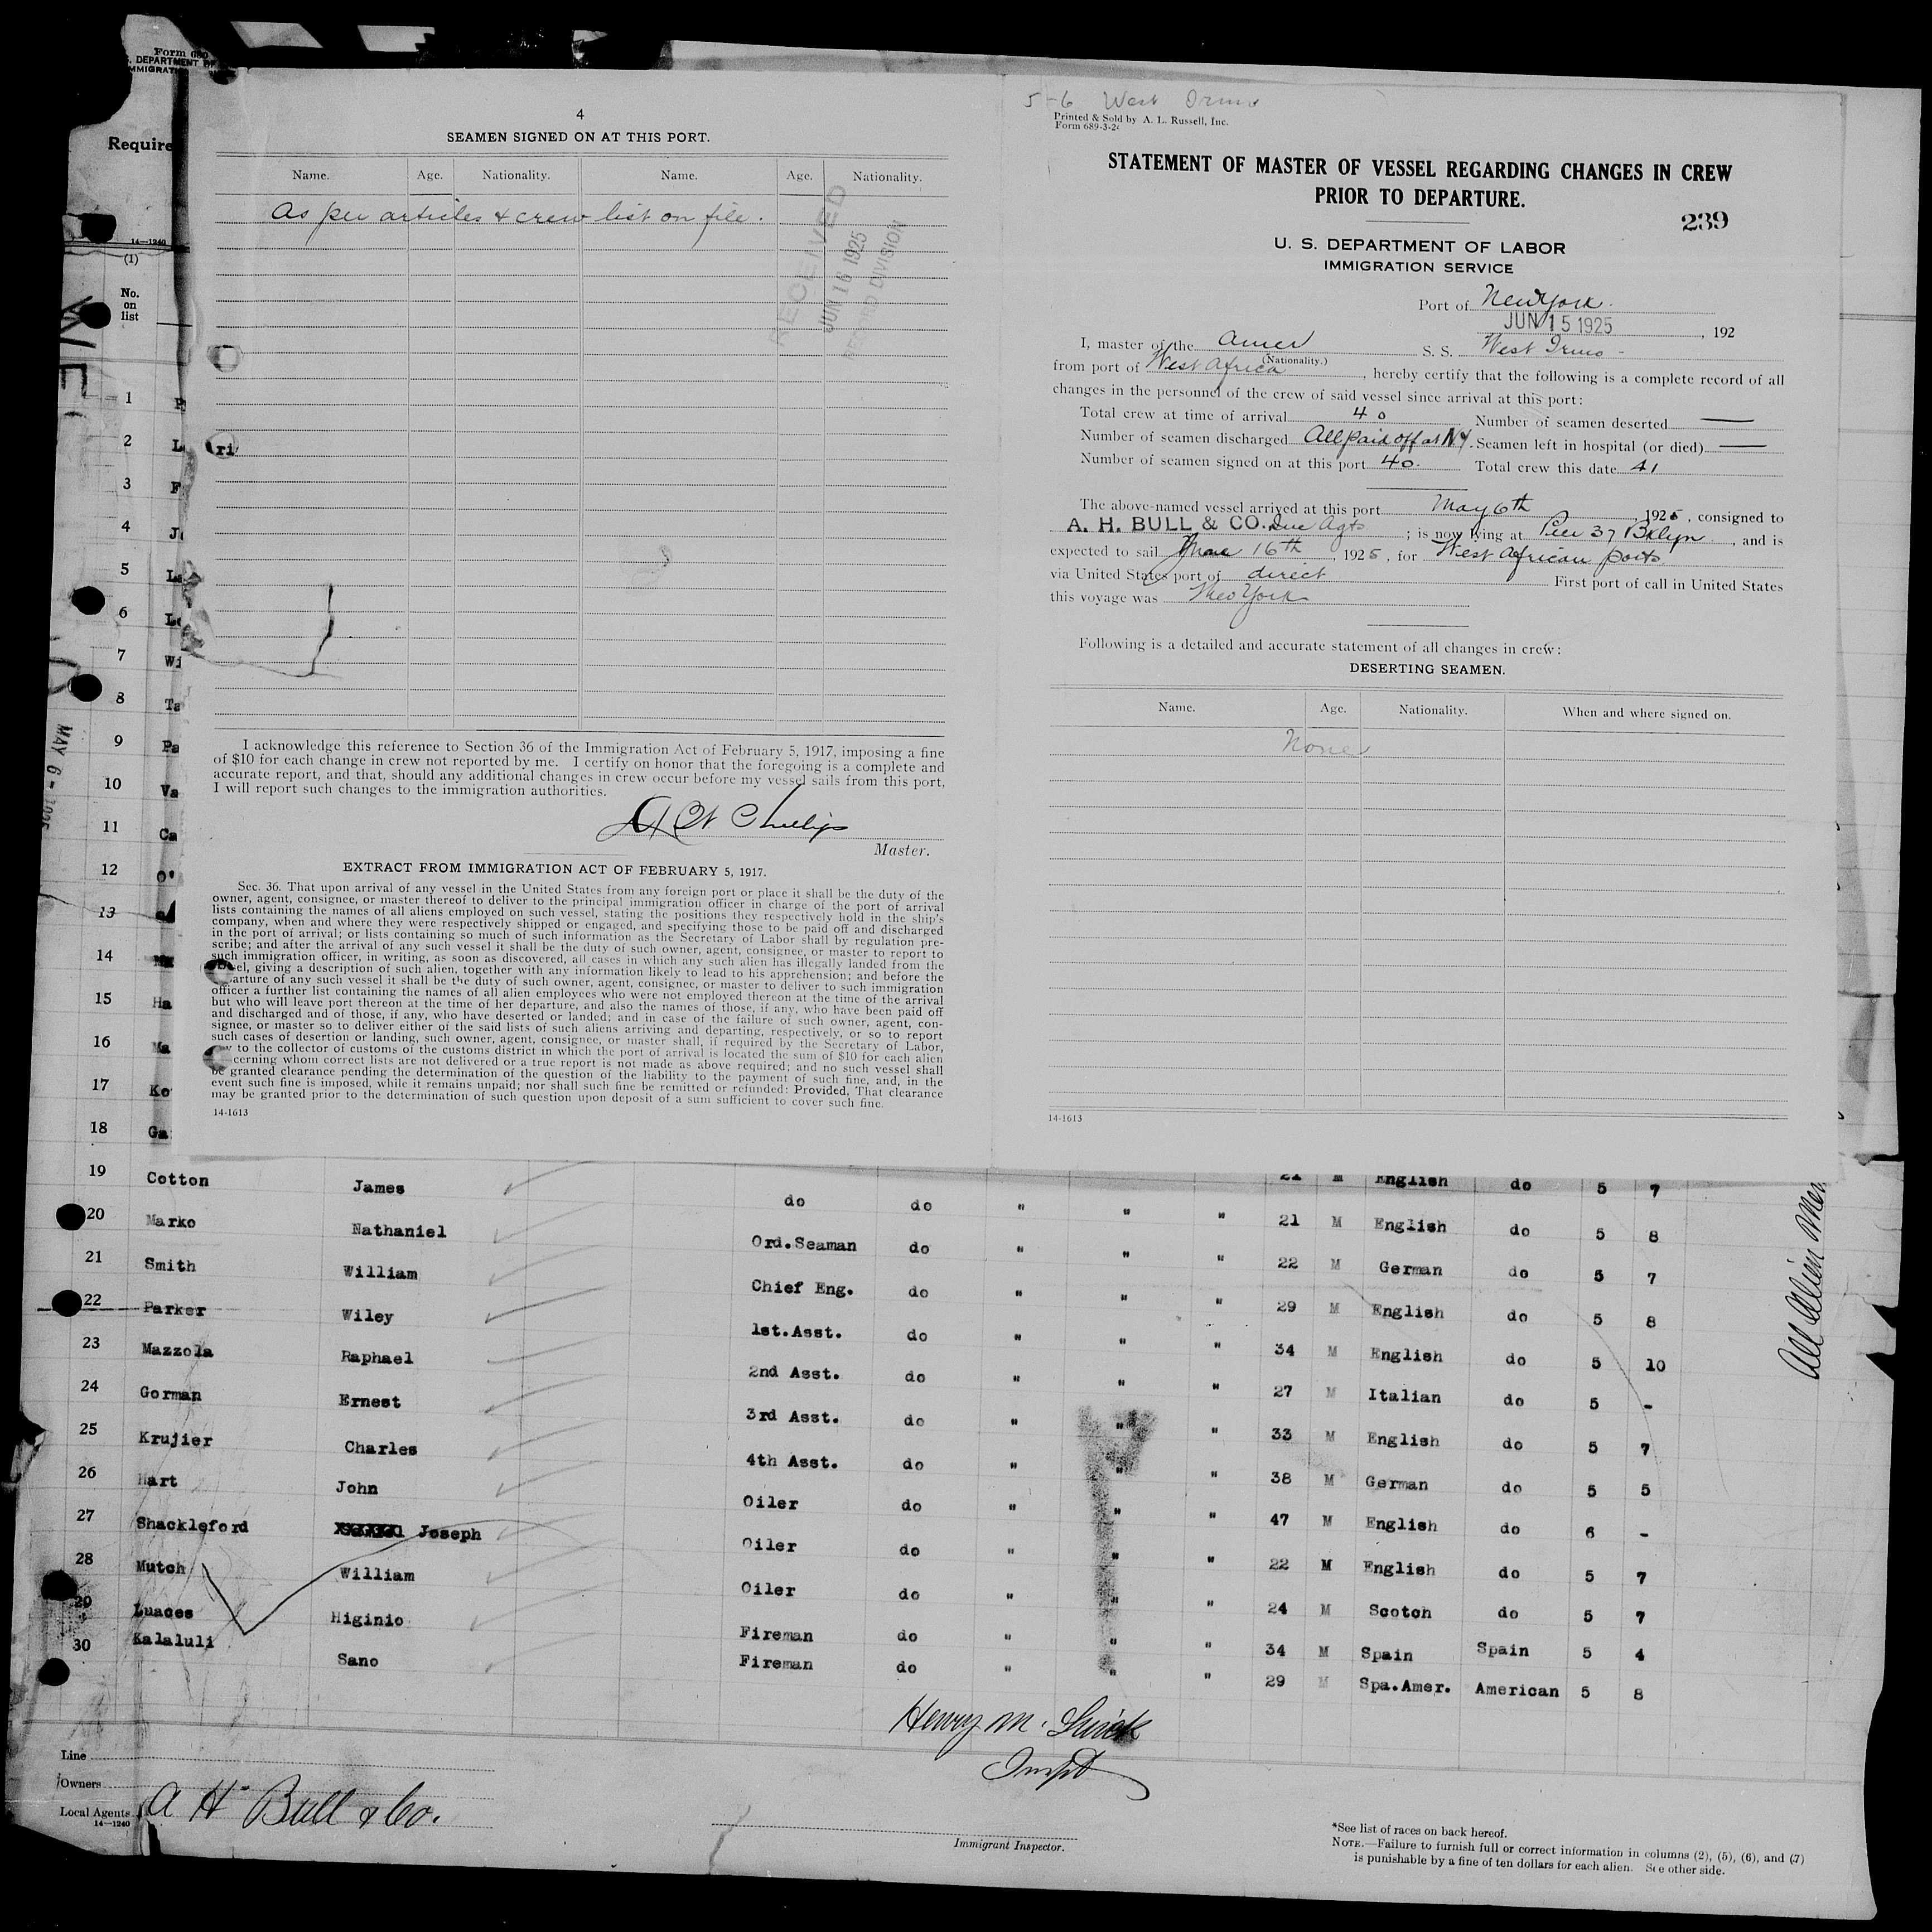 Form 680
DEPARTMENT OF
IMMIGRAT
Require
14—1240
(1)
No.
on
list
MAY 6 - 1925
1
2 L
3 F
4
5
6
7 Wi
8 Ta
9 Pa
10 Va
11 Ca
12 O'
13
14
15 Ha
16 Ma
17 Ko
18 Ga
4
SEAMEN SIGNED ON AT THIS PORT.
Name. Age. Nationality. Name. Age. Nationality.
As per articles & crew list on file.
RECEIVED
JUN 16 1925
DIVISION
I acknowledge this reference to Section 36 of the Immigration Act of February 5, 1917, imposing a fine
of $10 for each change in crew not reported by me. I certify on honor that the foregoing is a complete and
accurate report, and that, should any additional changes in crew occur before my vessel sails from this port,
I will report such changes to the immigration authorities.
Phillips
Master.
EXTRACT FROM IMMIGRATION ACT OF FEBRUARY 5, 1917.
Sec. 36. That upon arrival of any vessel in the United States from any foreign port or place it shall be the duty of the
owner, agent, consignee, or master thereof to deliver to the principal immigration officer in charge of the port of arrival
lists containing the names of all aliens employed on such vessel, stating the positions they respectively hold in the ship's
company, when and where they were respectively shipped or engaged, and specifying those to be paid off and discharged
in the port of arrival; or lists containing so much of such information as the Secretary of Labor shall by regulation pre-
scribe; and after the arrival of any such vessel it shall be the duty of such owner, agent, consignee, or master to report to
such immigration officer, in writing, as soon as discovered, all cases in which any such alien has illegally landed from the
sel, giving a description of such alien, together with any information likely to lead to his apprehension; and before the
arture of any such vessel it shall be the duty of such owner, agent, consignee, or master to deliver to such immigration
officer a further list containing the names of all alien employees who were not employed thereon at the time of the arrival
but who will leave port thereon at the time of her departure, and also the names of those, if any, who have been paid off
and discharged and of those, if any, who have deserted or landed; and in case of the failure of such owner, agent, con-
signee, or master so to deliver either of the said lists of such aliens arriving and departing, respectively, or so to report
such cases of desertion or landing, such owner, agent, consignee, or master shall, if required by the Secretary of Labor,
to the collector of customs of the customs district in which the port of arrival is located the sum of $10 for each alien
cerning whom correct lists are not delivered or a true report is not made as above required; and no such vessel shall
be granted clearance pending the determination of the question of the liability to the payment of such fine, and, in the
event such fine is imposed, while it remains unpaid; nor shall such fine be remitted or refunded: Provided, That clearance
may be granted prior to the determination of such question upon deposit of a sum sufficient to cover such fine.
14-1613
5-6 West Irmo
Printed & Sold by A. L. Russell, Inc.
Form 689-3-24
STATEMENT OF MASTER OF VESSEL REGARDING CHANGES IN CREW
PRIOR TO DEPARTURE.
239
U. S. DEPARTMENT OF LABOR
IMMIGRATION SERVICE
Port of New York.
JUN 15 1925, 192
I, master of the Amer S. S. West Irmo
(Nationality.)
from port of West Africa, hereby certify that the following is a complete record of all
changes in the personnel of the crew of said vessel since arrival at this port:
Total crew at time of arrival 40 Number of seamen deserted —
Number of seamen discharged All paid off at NY. Seamen left in hospital (or died) —
Number of seamen signed on at this port 40. Total crew this date 41
The above-named vessel arrived at this port May 6th, 1925, consigned to
A. H. BULL & CO. Inc Agts; is now lying at Pier 37 Bklyn, and is
expected to sail June 16th, 1925, for West African ports
via United States port of direct First port of call in United States
this voyage was New York
Following is a detailed and accurate statement of all changes in crew:
DESERTING SEAMEN.
Name. Age. Nationality. When and where signed on.
None
14-1613
19 Cotton James do do " " " 21 M English do 5 7
20 Marko Nathaniel Ord.Seaman do " " " 21 M English do 5 8
21 Smith William Chief Eng. do " " " 22 M German do 5 7
22 Parker Wiley 1st.Asst. do " " " 29 M English do 5 8
23 Mazzola Raphael 2nd Asst. do " " " 34 M English do 5 10
24 Gorman Ernest 3rd Asst. do " " " 27 M Italian do 5 -
25 Krujier Charles 4th Asst. do " " " 33 M English do 5 7
26 Hart John Oiler do " " " 38 M German do 5 5
27 Shackleford Joseph Oiler do " " " 47 M English do 6 -
28 Mutch William Oiler do " " " 22 M English do 5 7
29 Luaces Higinio Fireman do " " " 24 M Scotch do 5 7
30 Kalaluli Sano Fireman do " " " 34 M Spain Spain 5 4
29 M Spa.Amer. American 5 8
All Alien
Henry M.
Inspt
Line
Owners
Local Agents A H Bull & Co.
14—1240
Immigrant Inspector.
*See list of races on back hereof.
NOTE.—Failure to furnish full or correct information in columns (2), (5), (6), and (7)
is punishable by a fine of ten dollars for each alien. See other side.